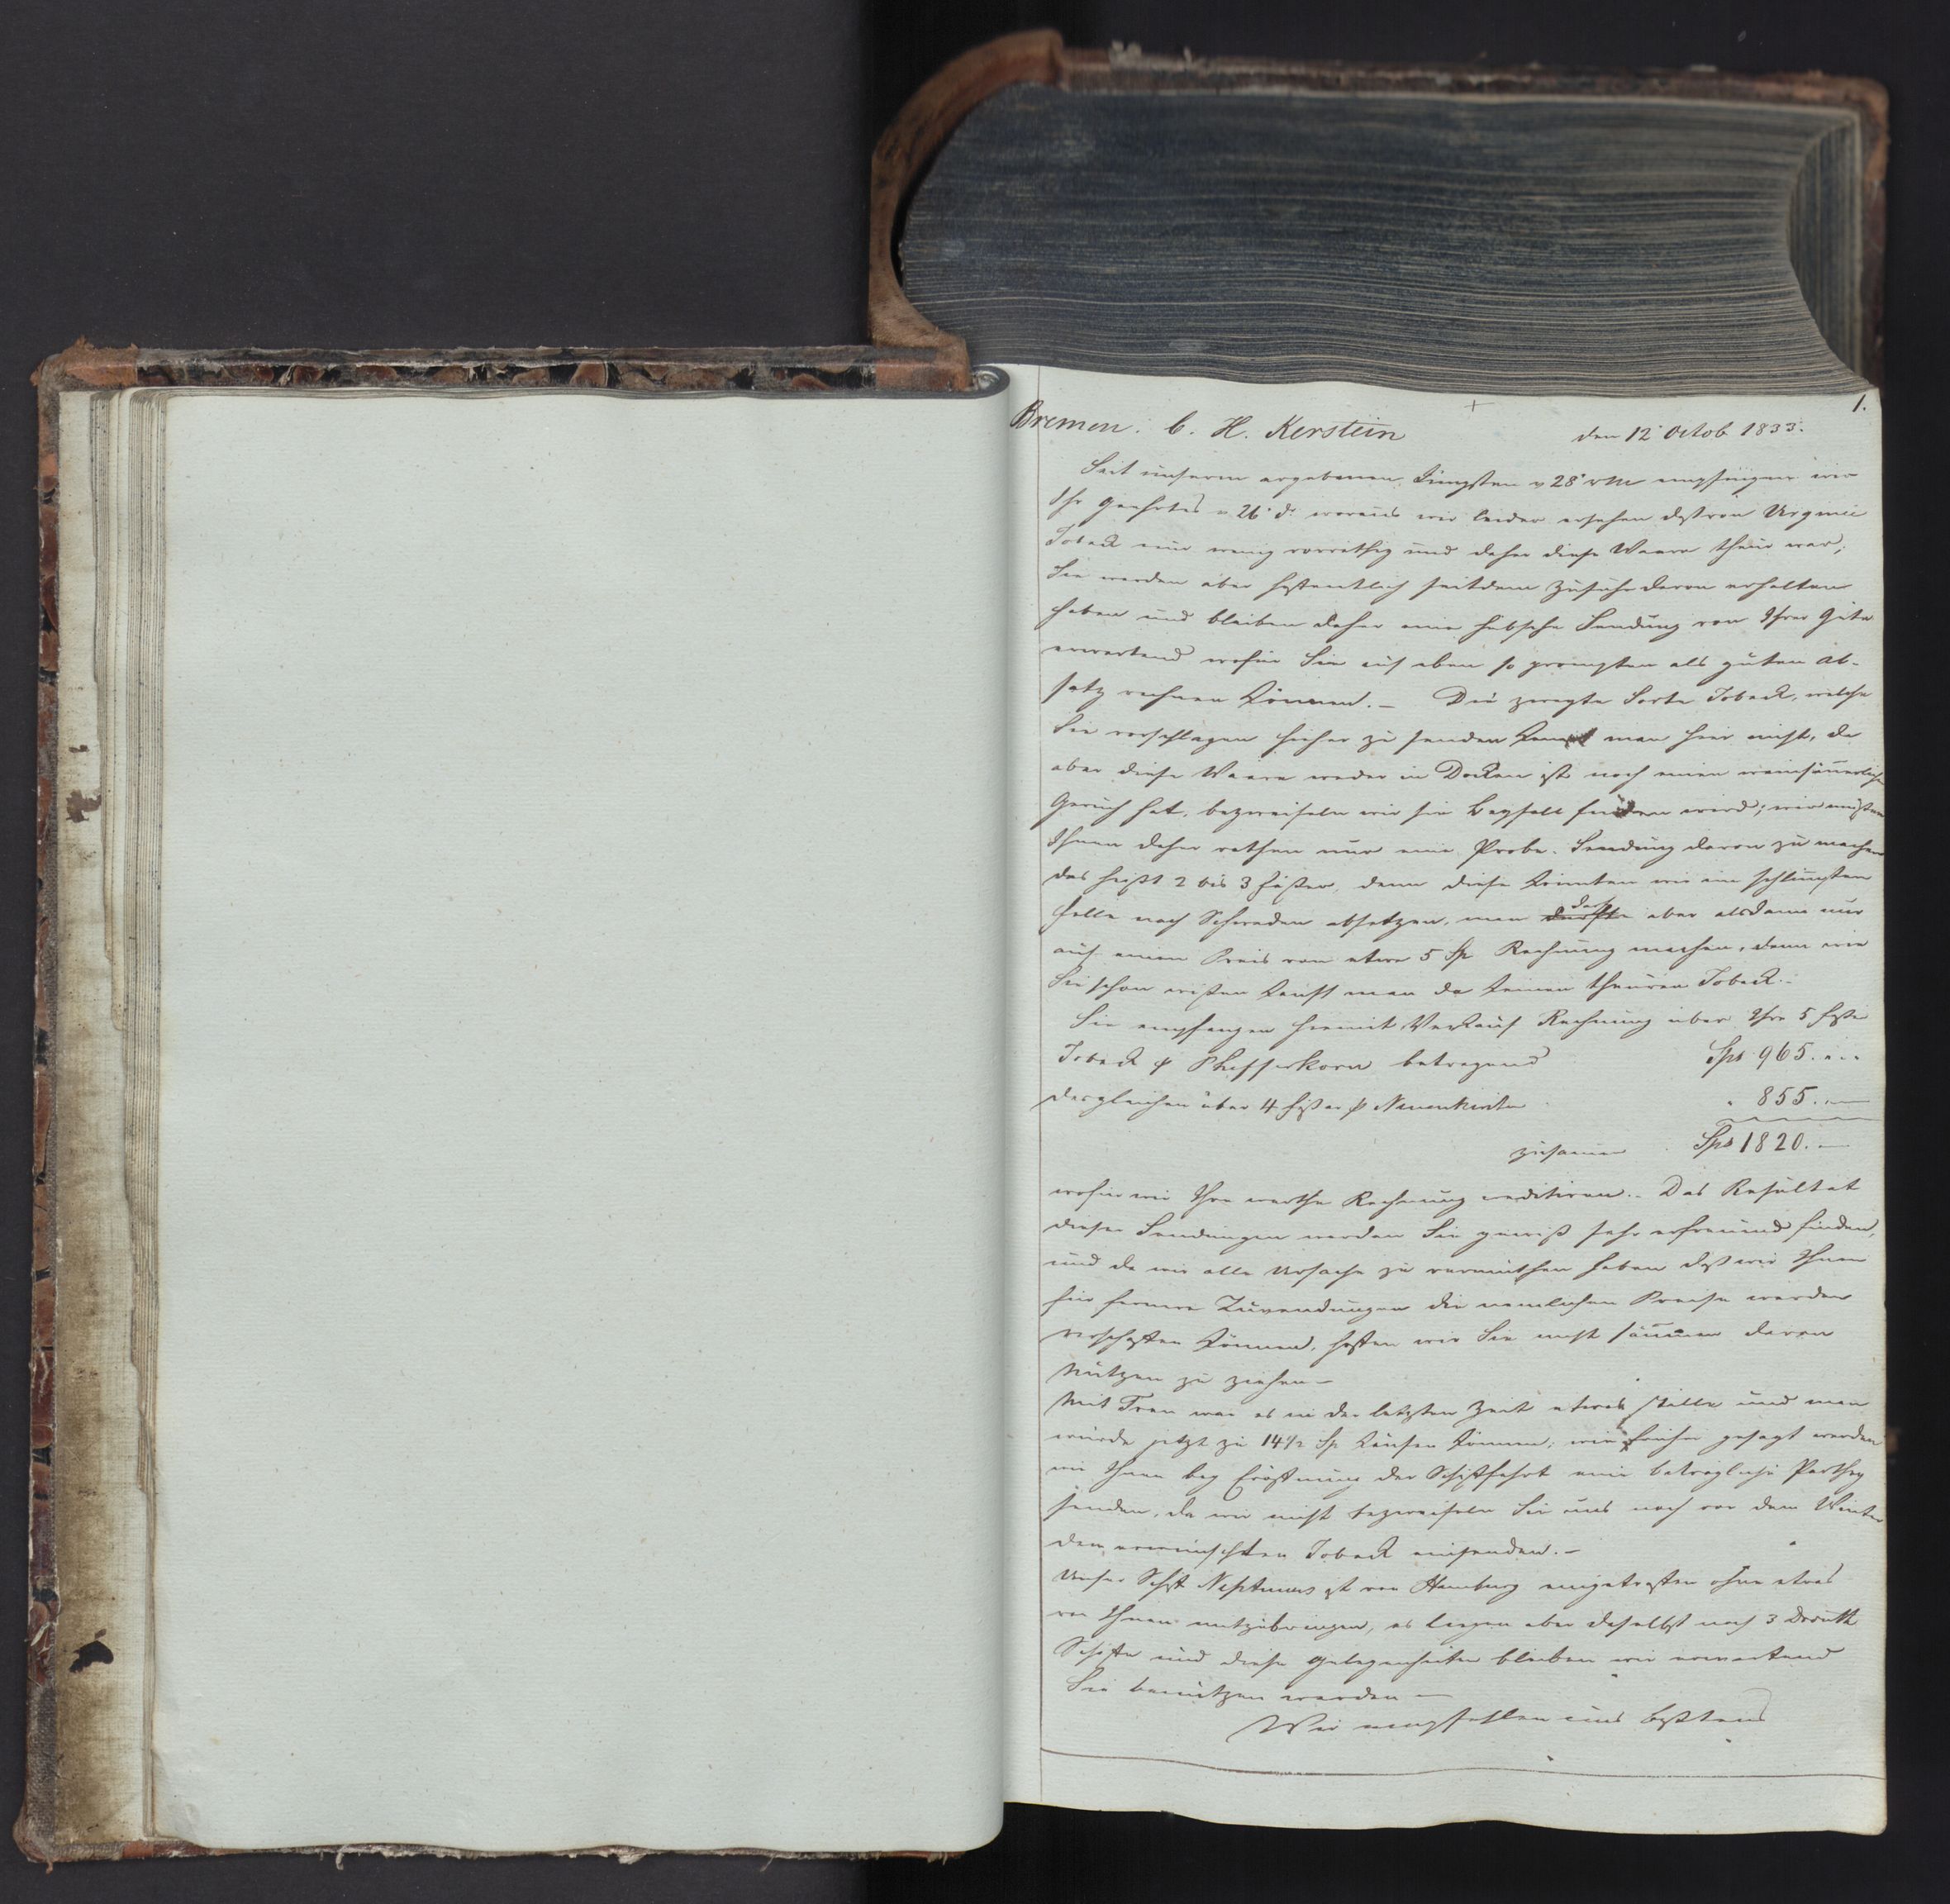 1.
Bremen. C. H. Kerstein den 12 Octob 1833.
Seit unserm ergebenen Jüngsten v 28 v M empfingen wir
Ihr Geehrtes v 26 d. woraus wir leider ersehen daß von Virginie
Toback nur wenig vorräthig und daher diese Waare theur war;
Sie werden aber hoffentlich seitdem Zufuhr davon erhalten
haben und bleiben daher eine hübsche Sendung von Ihrer Güte
erwartend wofür Sie auf eben so prompten als guten Ab-
satz rechnen können. – Die zweyte Sorte Toback, welche
Sie vorschlagen hieher zu senden kennt man hier nicht, da
aber diese Waare weder in Docken ist noch einen weinsäuerlichen
Geruch hat, bezweifeln wir sie Beyfall finden wird; wir müßen
Ihnen daher rathen nur eine Probe-Sendung davon zu machen
das heißt 2 bis 3 Fäßer, denn diese könnten wir im schlimsten
Falle nach Schweden absetzen, man darf aber alsdann nur
auf einen Preis von etwa 5 Sp Rechnung machen, denn wie
Sie schon wißen kauft man da keinen theuren Toback. –
Sie empfangen hiemit Verkauf Rechnung über Ihre 5 Fäßer
Toback p Pfefferkorn betragend Sps 965. –
desgleichen über 4 Fäßer p " 855. –
zusamen Sps 1820. –
wofür wir Ihre werthe Rechnung creditiren. – Das Resultat
dieser Sendungen werden Sie gewiß sehr erfreuend finden,
und da wir alle Ursache zu vermuthen haben daß wir Ihnen
für fernere Zuwendungen die nemlichen Preise werden
verschaffen können, hoffen wir Sie nicht säumen davon
Nutzen zu ziehen –
Mit Tran war es in der letzten Zeit etwas stille und man
würde jetzt zu 14½ Sp kaufen können; wie früher gesagt werden
wir Ihnen bey Eröffnung der Schiffahrt eine beträgliche Parthey
senden, da wir nicht bezweifeln Sie uns noch vor dem Winter
den erwünschten Toback einsenden. –
Unser Schiff Neptunus ist von Hamburg eingetroffen ohne etwas
von Ihnen mitzubringen, es liegen aber daselbst noch 3 Dronth
Schiffe und diese Gelegenheiten bleiben wir erwartend
Sie benutzen werden –
Wir empfehlen uns bestens